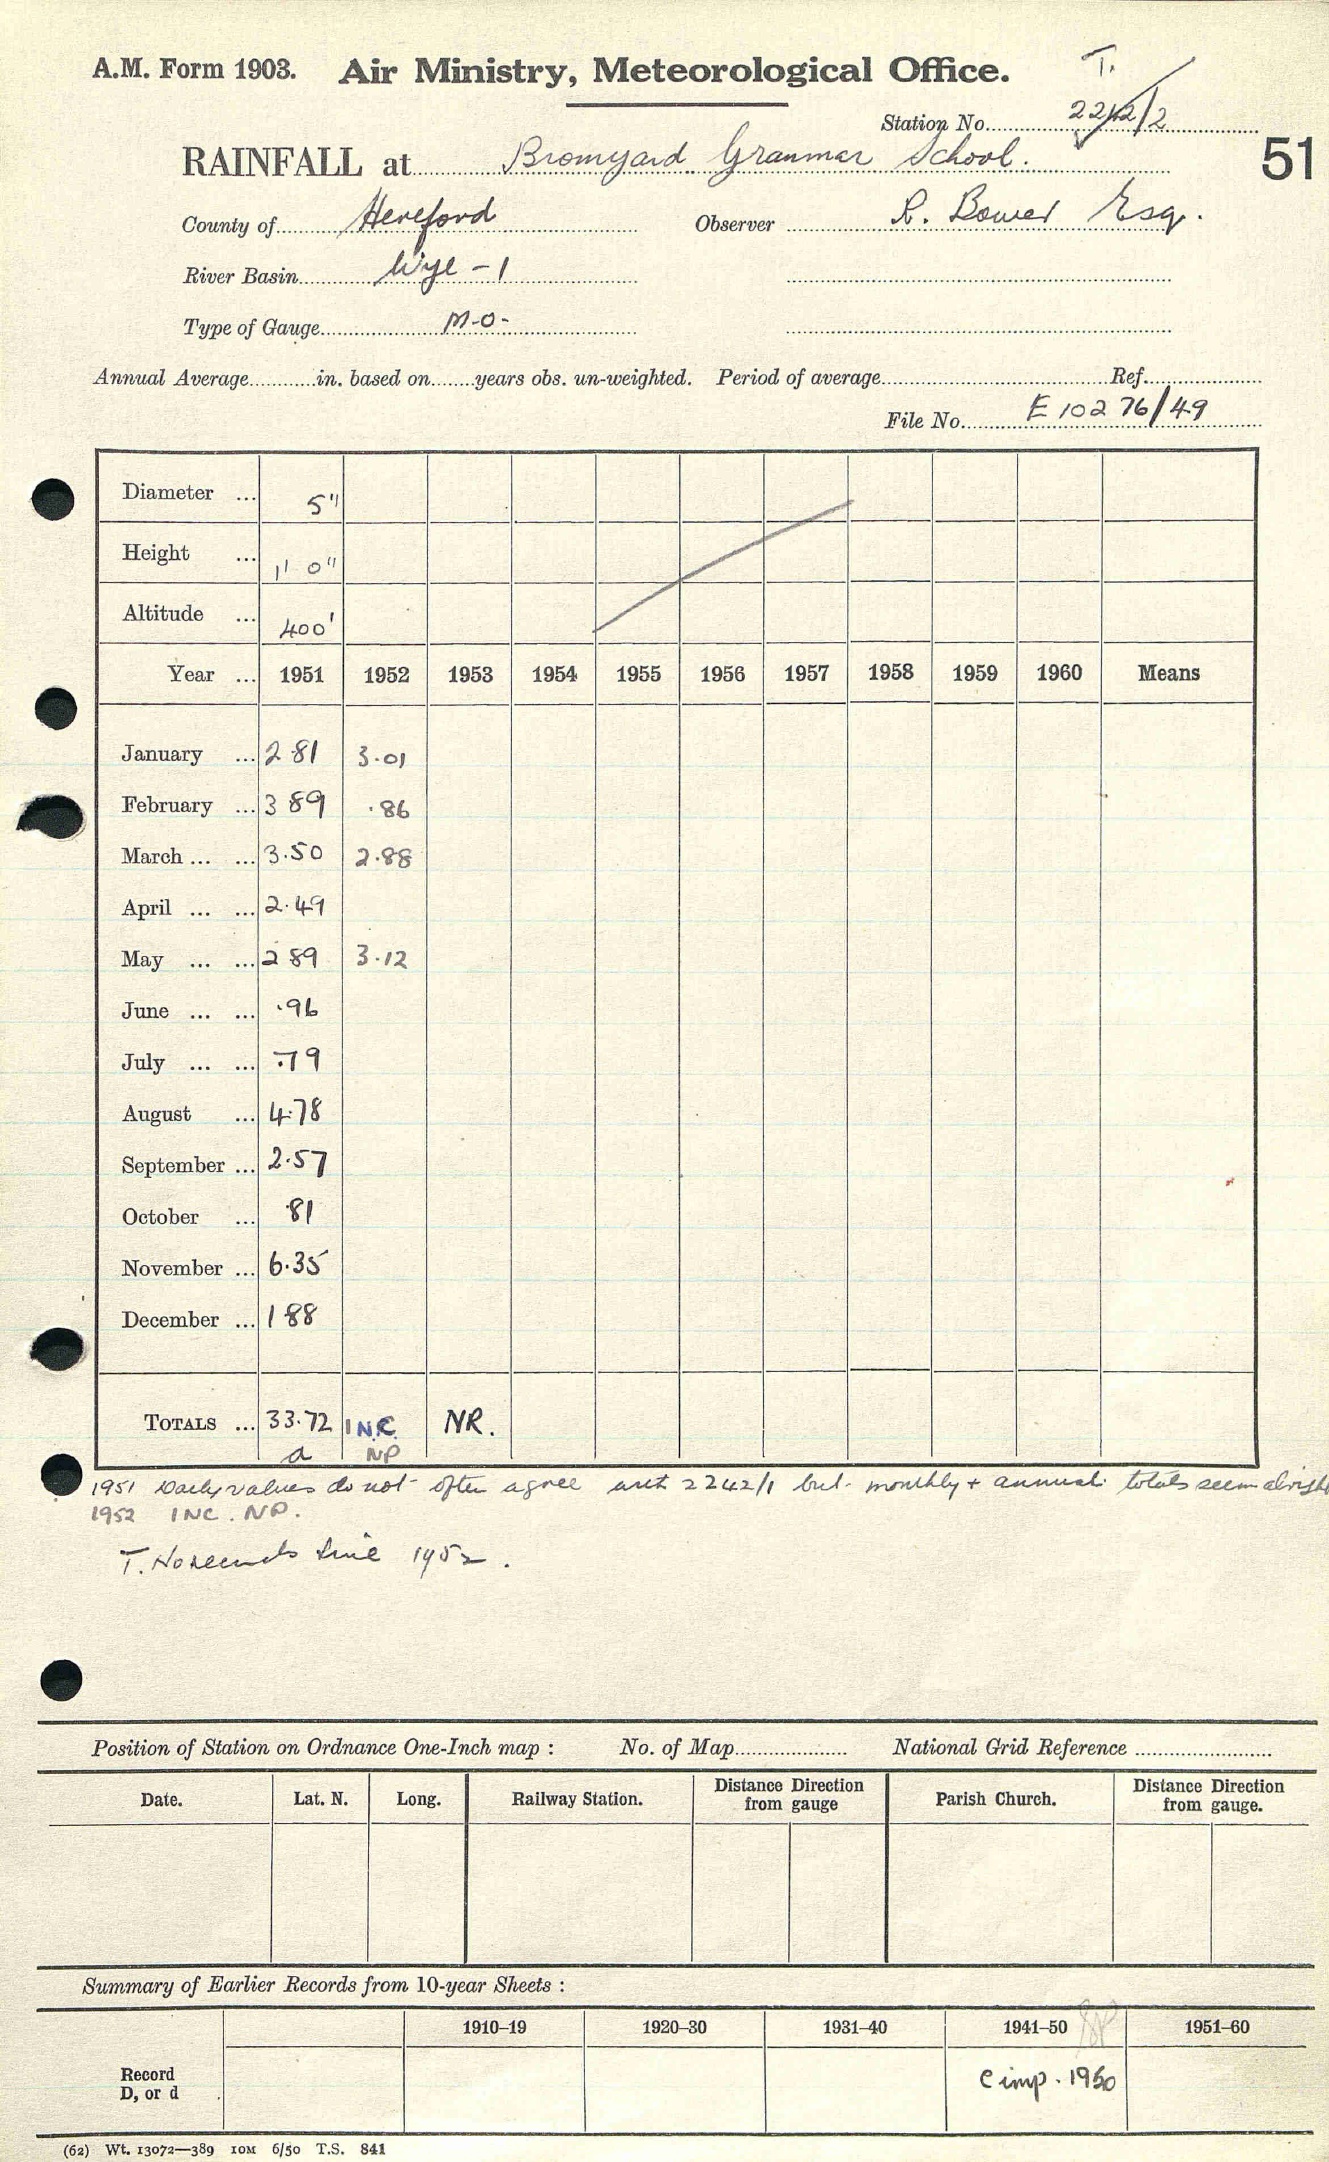 T.
A.M. Form 1903. Air Ministry, Meteorological Office.
Station No. 2242/2
RAINFALL at Bromyard Grammar School. 51
County of Hereford Observer R. Bower Esq.
River Basin Wye - 1
Type of Gauge M-O-
Annual Average in. based on years obs. un-weighted. Period of average Ref.
File No. E 10276/49
Diameter ... 5"
Height ... 1' 0"
Altitude ... 400'
Year ... 1951 1952 1953 1954 1955 1956 1957 1958 1959 1960 Means
January ... 2.81 3.01
February ... 3 89 .86
March ... ... 3.50 2.88
April ... ... 2.49
May ... ... 2 89 3.12
June ... ... .96
July ... ... .79
August ... 4.78
September ... 2.57
October ... .81
November ... 6.35
December ... 1 88
TOTALS ... 33.72 INC. NR.
a NP
1951 Daily values do not often agree with 2242/1 but monthly + annual totals seem alright
1952 INC. NP.
T. No records since 1952.
Position of Station on Ordnance One-Inch map : No. of Map National Grid Reference
Date. Lat. N. Long. Railway Station. Distance Direction from gauge Parish Church. Distance Direction from gauge.
Summary of Earlier Records from 10-year Sheets :
1910–19 1920–30 1931–40 1941–50 1951–60
Record
D, or d
C imp. 1950
(62) Wt. 13072—389 10M 6/50 T.S. 841